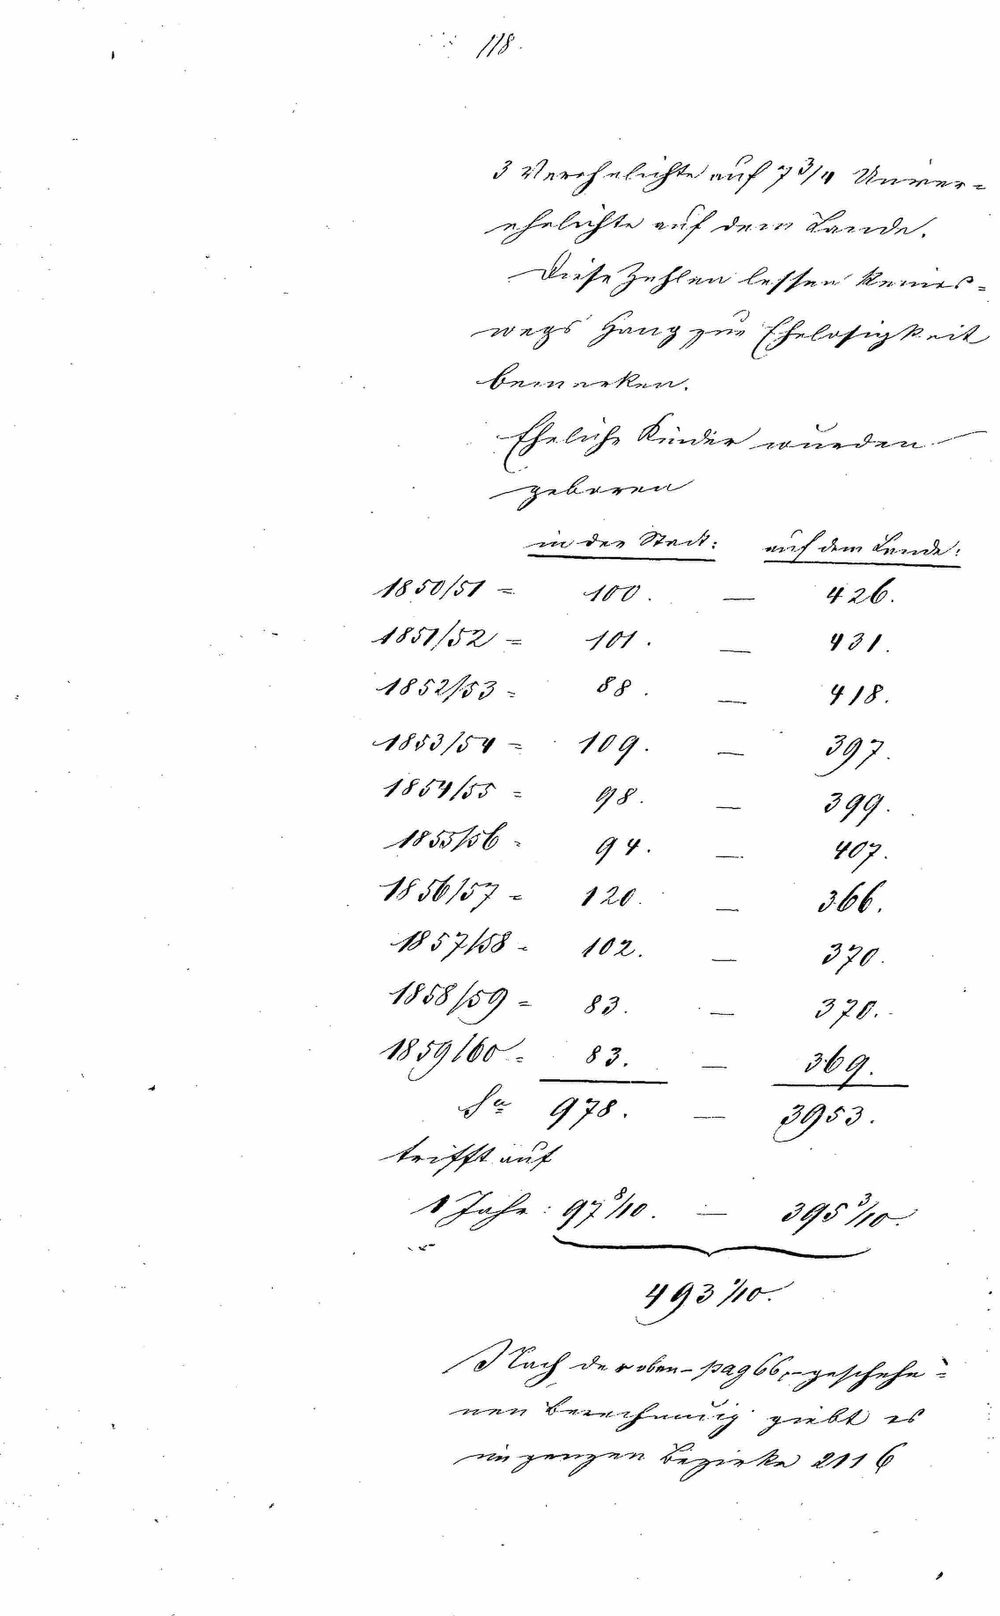 118.
3 Verehelichte auf 7 3/4 Unver-
ehelichte auf dem Lande.
Diese Zahlen lassen keines-
wegs Hang zur Ehelosigkeit
bemerken.
Eheliche Kinder wurden
geboren
in der Stadt: auf dem Lande:
1850/51 = 100. — 426.
1851/52 = 101. — 431.
1852/53 = 88. — 418.
1853/54 = 109. — 397.
1854/55 = 98. — 399.
1855/56 = 94. — 407.
1856/57 = 120. — 366.
1857/58 = 102. — 370.
1858/59 = 83. — 370.
1859/60 = 83. — 369.
Sa 978. — 3953.
trifft auf
1 Jahr: 97 8/10. — 395 3/10.
493 1/10.
Nach der oben - pag 66, - geschehe-
nen Berechnung giebt es
im ganzen Bezirke 2116